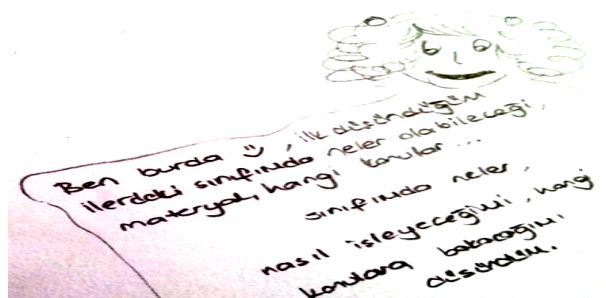 Ben burda ☺, ilk düşündüğüm
ilerdeki sınıfımda neler olabileceği,
materyal, hangi konular...
sınıfımda neler,
nasıl işleyeceğimi, hangi
konulara bakacağımı
düşündüm.